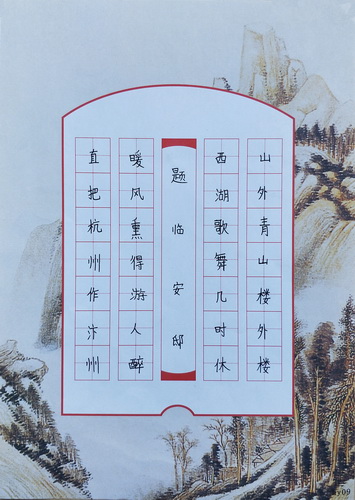 山外青山楼外楼
西湖歌舞几时休
题临安邸
暖风熏得游人醉
直把杭州作汴州